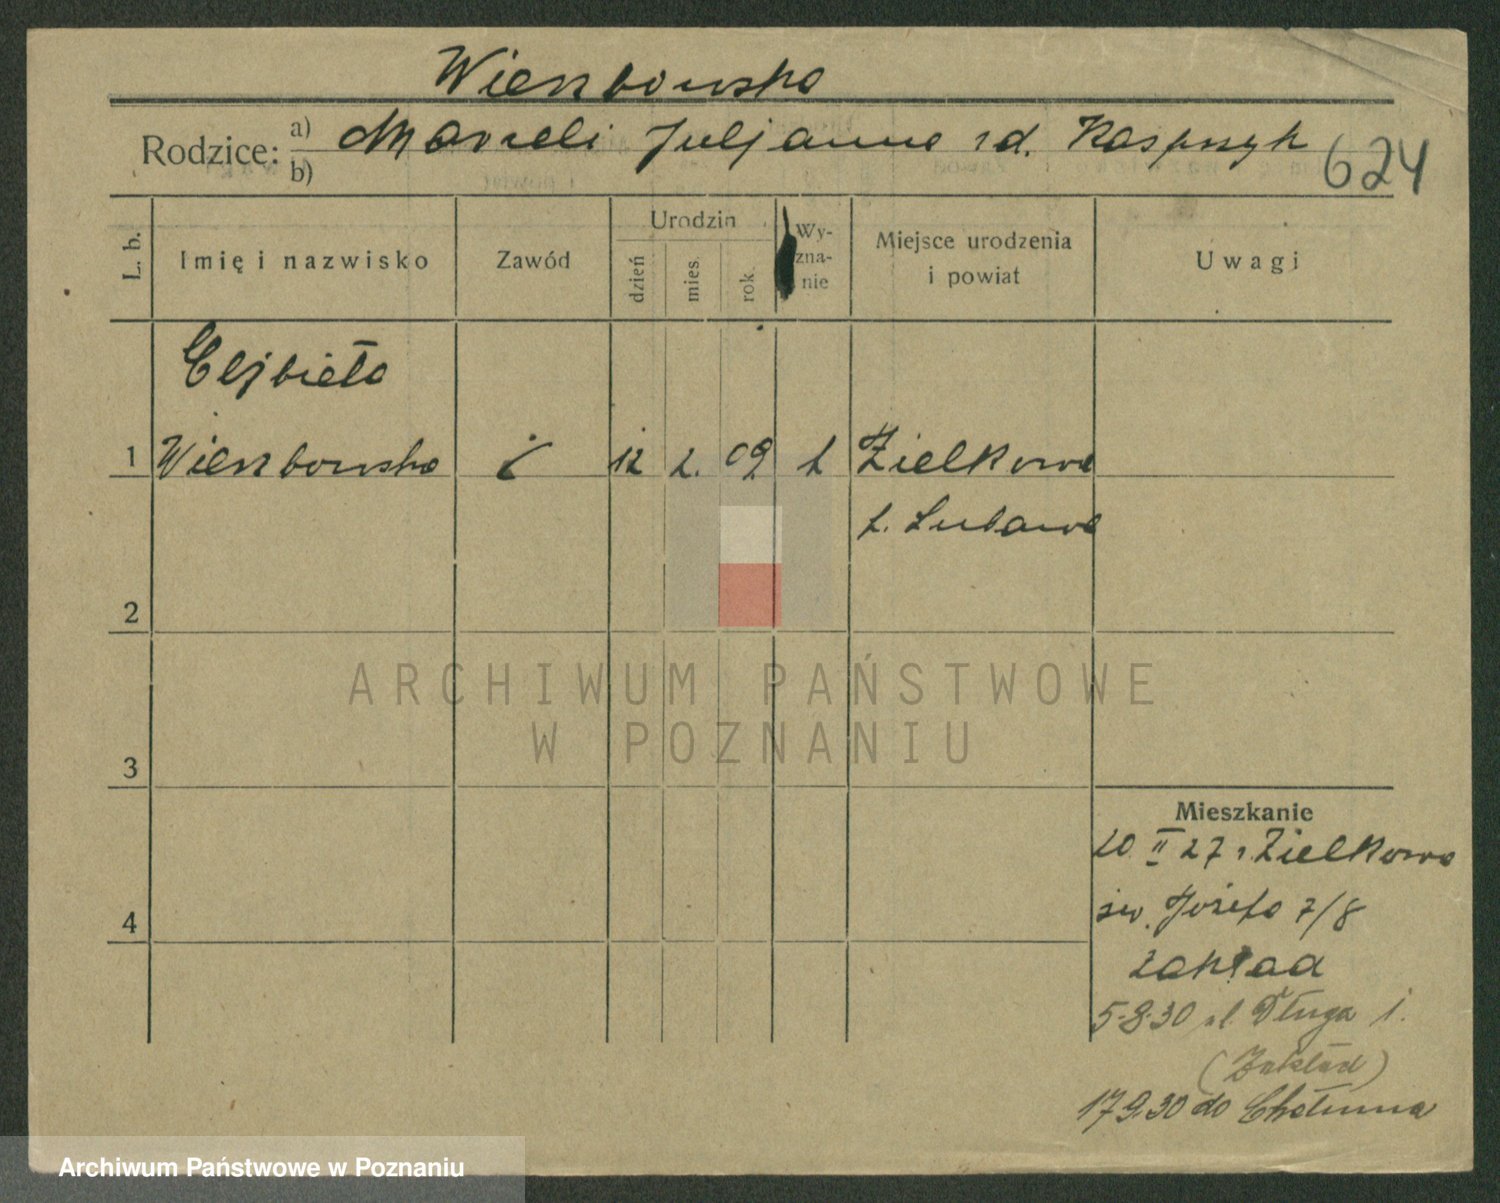 Wierzbowska
Rodzice: a) Marceli Juljanna rd. Kasprzyk
b)
624
L. b.
Imię i nazwisko
Zawód
Urodzin
dzień
mies.
rok
Wyznanie
Miejsce urodzenia
i powiat
Uwagi
Elżbieta
1 Wierzbowska 12 2. 09 Zielkowa
Lubawa
2
3
4
Mieszkanie
20 II 27 Zielkowa
św. Józefa 7/8
zakład
5.8.30 ul. Długa 1.
(Zakład)
17 9.30 do Chełmna
ARCHIWUM PAŃSTWOWE
W POZNANIU
Archiwum Państwowe w Poznaniu